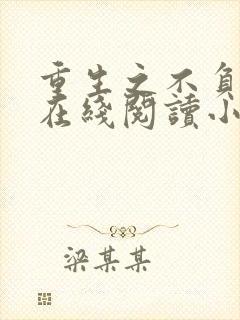 重生之不負
在綫閱讀小
梁某某